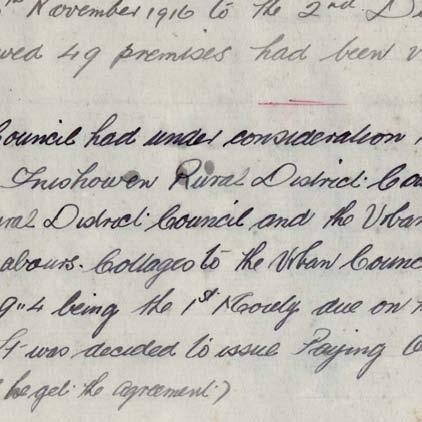 November 1916 to the 2nd D
wed 49 premises had been v
Council had under consideration
Inishowen Rural District Cou
ral District Council and the Urban
abours. Cottages to the Urban Counc
9"4 being the 1st Moiety due on
It was decided to issue Paying
he get the agreement)